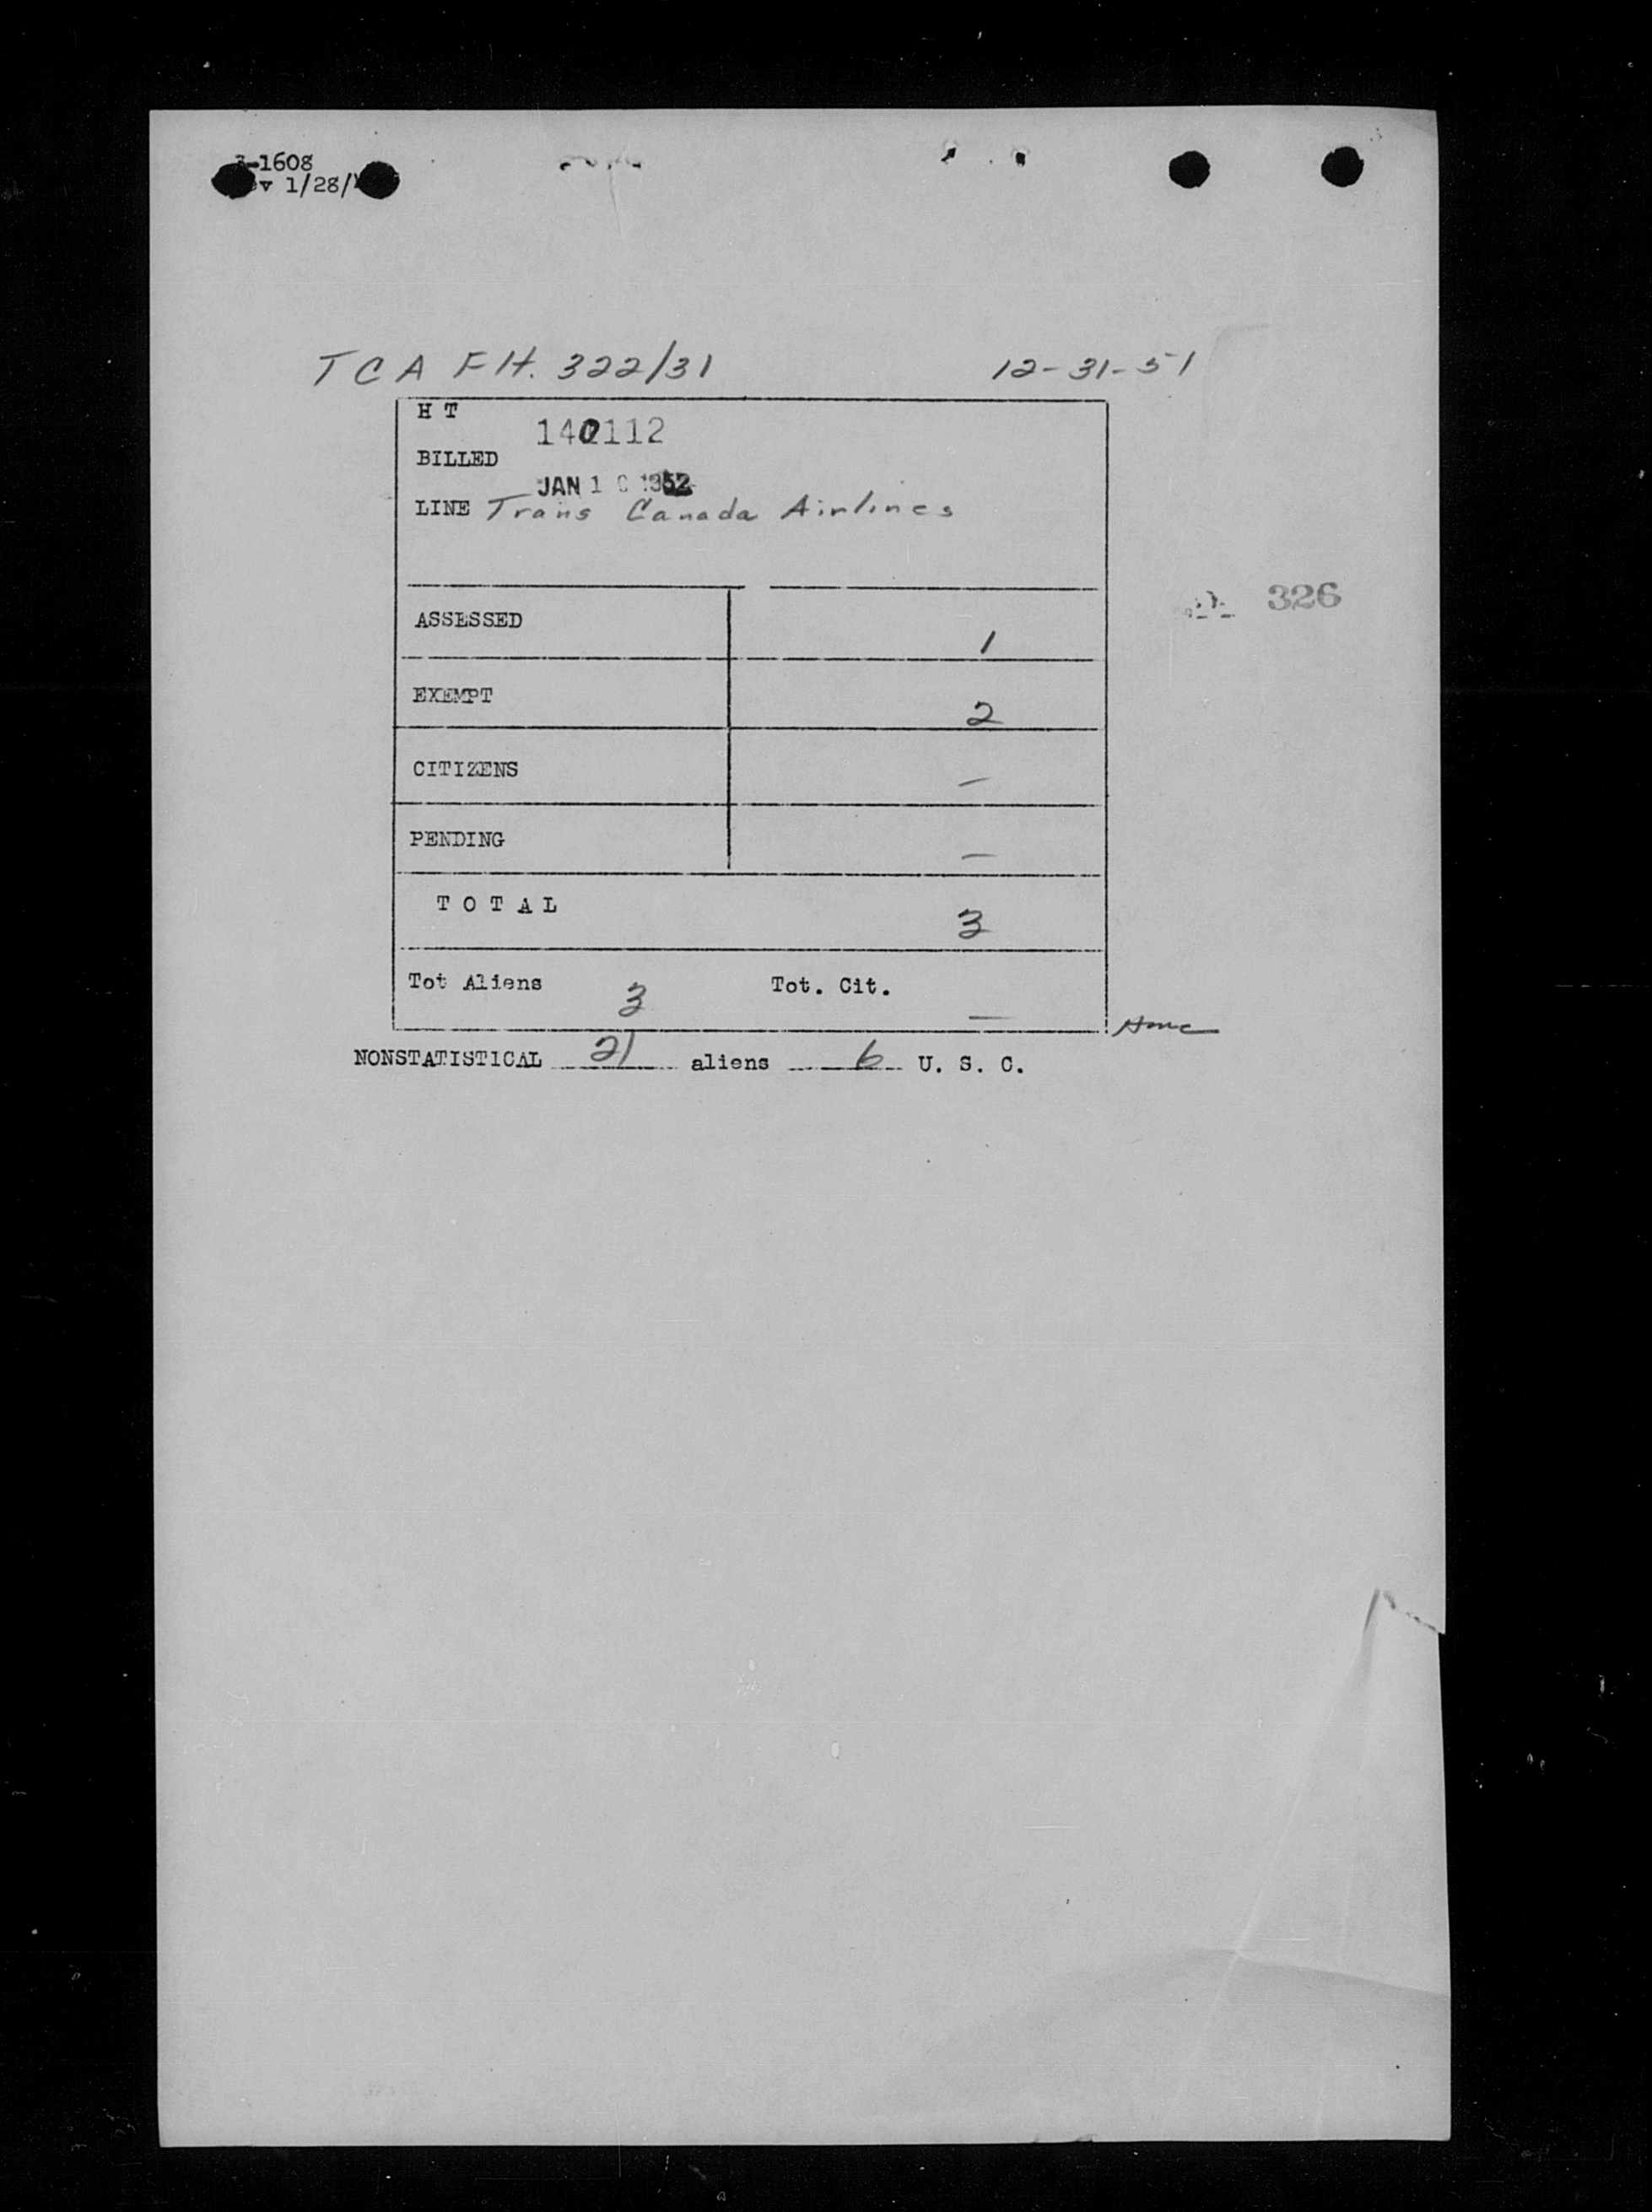 -1608
v 1/28/
TCA Flt. 322/31 12-31-51
H T
140112
BILLED
JAN 10 1952
LINE Trans Canada Airlines
326
ASSESSED 1
EXEMPT 2
CITIZENS —
PENDING —
T O T A L 3
Tot Aliens 3 Tot. Cit. —
NONSTATISTICAL 21 aliens 6 U. S. C.